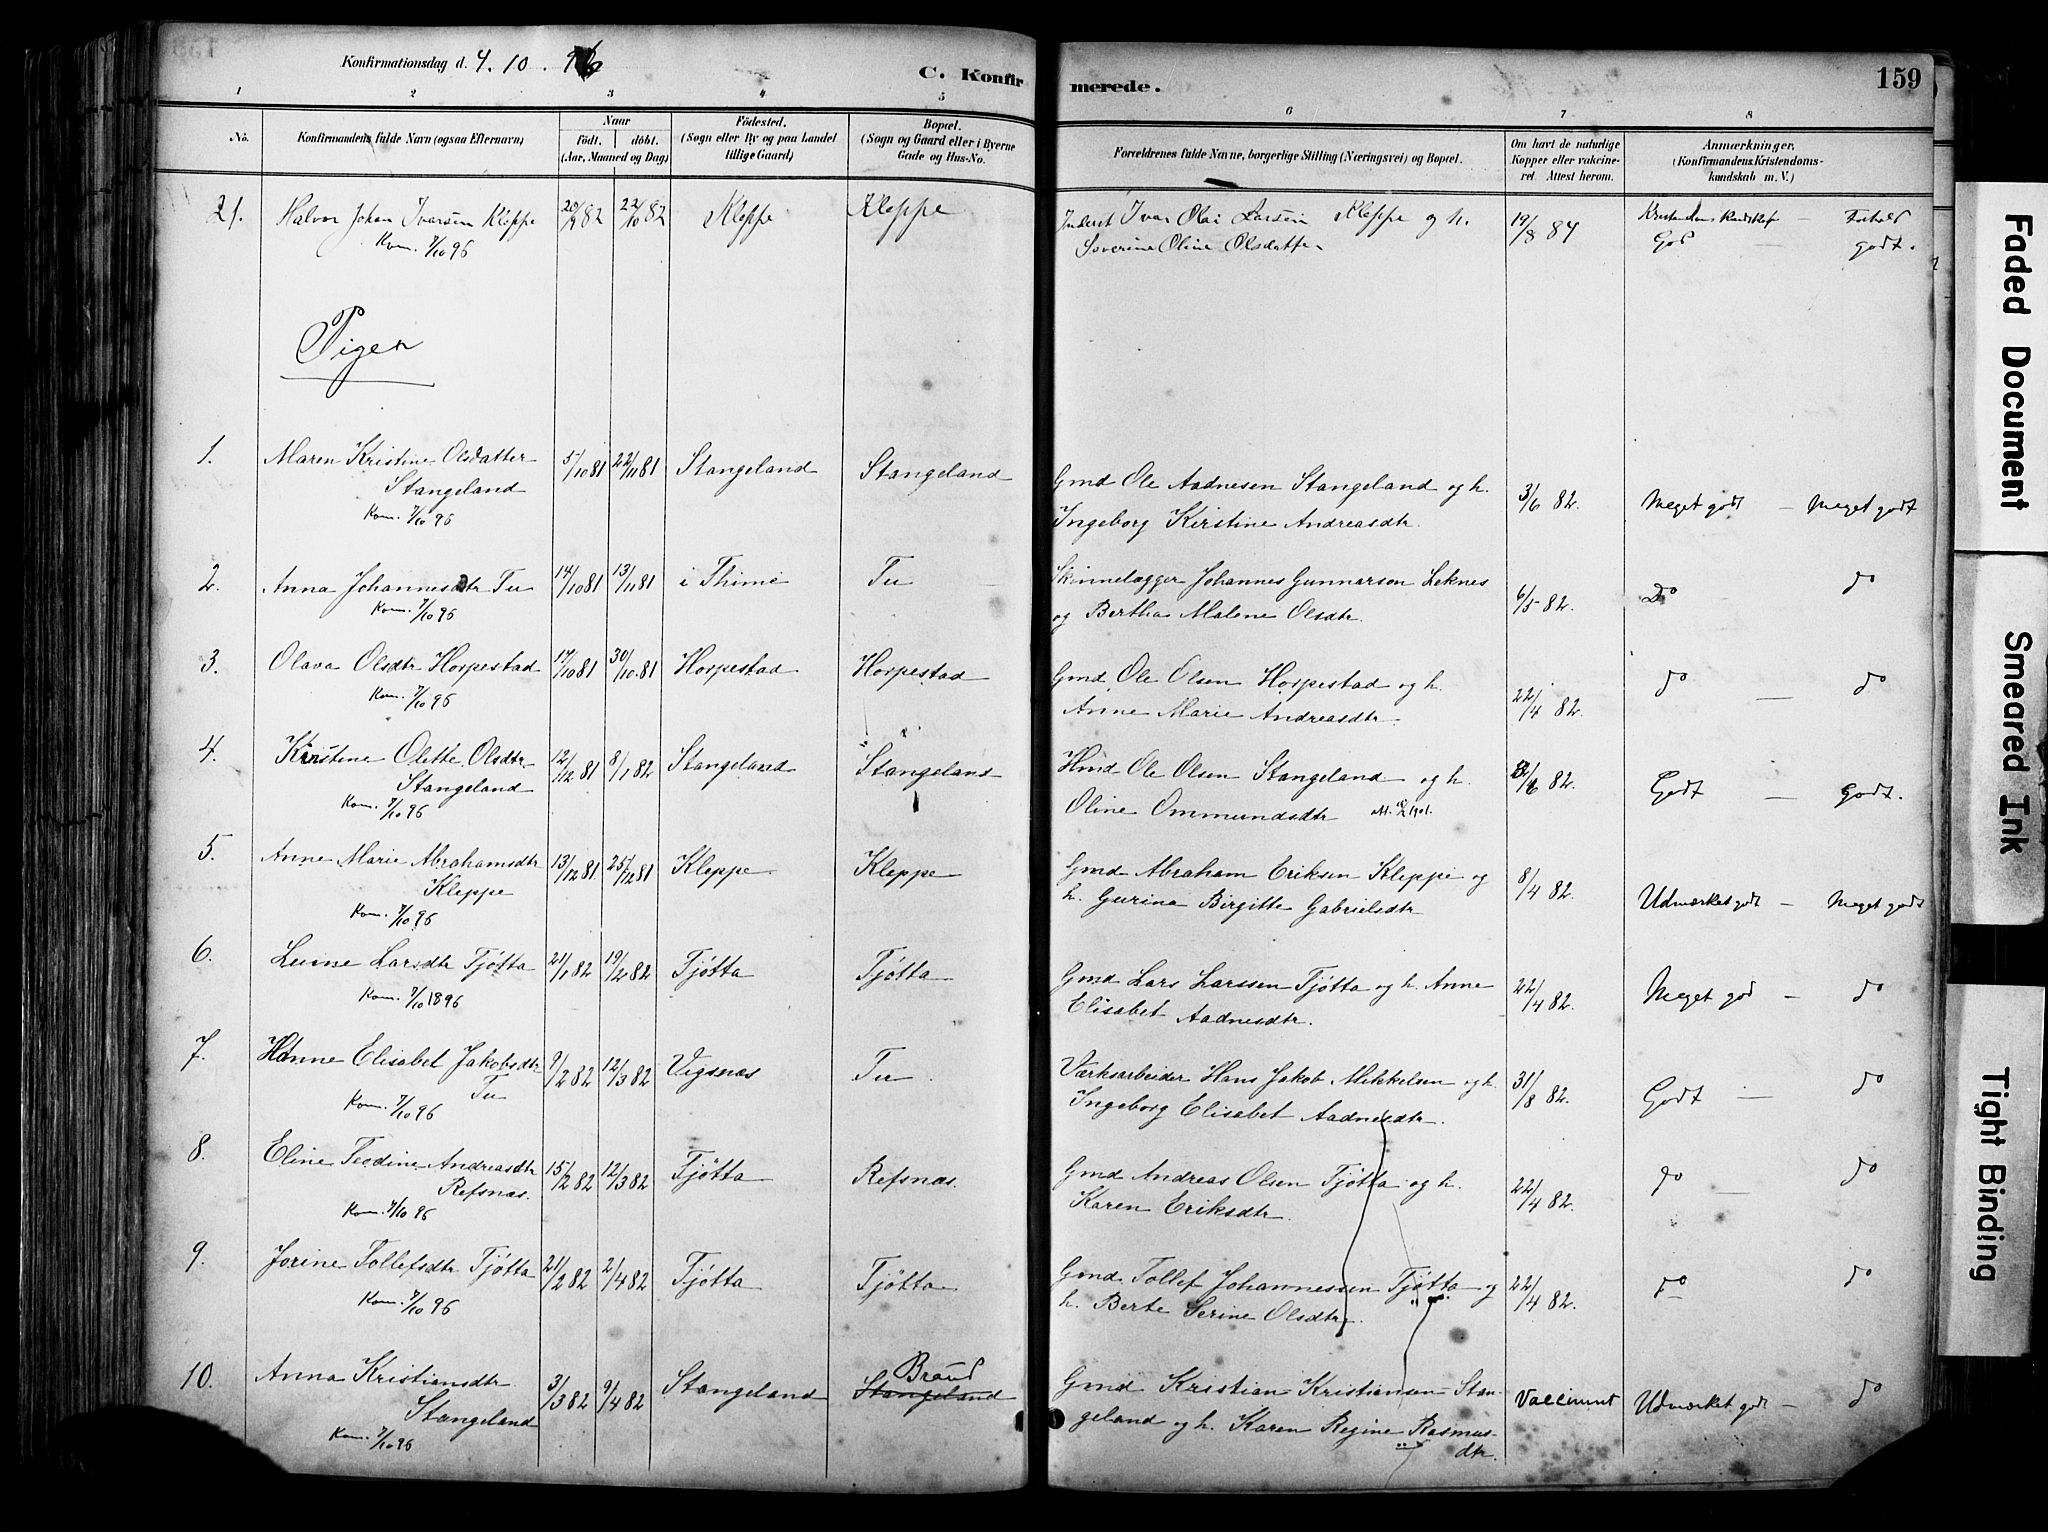 Konfirmationsdag d. 4. 10. 96
C. Konfirmerede.
159
1 2 3 4 5 6 7 8
No.
Konfirmandens fulde Navn (ogsaa Efternavn)
Naar
født. døbt.
(Aar, Maaned og Dag)
Fødested.
(Sogn eller By og paa Landet
tillige Gaard)
Bopæl.
(Sogn og Gaard eller i Byerne
Gade og Hus-No.
Forældrenes fulde Navne, borgerlige Stilling (Næringsvei) og Bopæl.
Om havt de naturlige
Kopper eller vakcine-
ret. Attest herom.
Anmærkninger.
(Konfirmandens Kristendoms-
kundskab m. V.)
21. Halvor Johan Ivarsen Kleppe 20/9 82 22/10 82 Kleppe Kleppe Inderst Ivar Olai Larsen Kleppe og h. 19/8 84 Kristendomskundskab — Forhold
Kom. 7/10 96 Severine Oline Olsdatter God — godt.
Piger
1. Maren Kristine Olsdatter 5/10 81 22/11 81 Stangeland Stangeland Gmd Ole Aadnesen Stangeland og h. 3/6 82. Meget godt — Meget godt
Stangeland Ingeborg Kirstine Andreasdtr.
Kom. 7/10 96
2. Anna Johannesdtr Tu 14/10 81 13/11 81 i Thime Tu Skinnelægger Johannes Gunnarson Leknes 6/5 82. Do do
Kom. 7/10 96 og Bertha Malene Olsdtr.
3. Olava Olsdtr Horpestad 17/10 81 30/10 81 Horpestad Horpestad Gmd Ole Olsen Horpestad og h. 22/4 82. do — do
Kom. 7/10 96 Anne Marie Andreasdtr.
4. Kirstine Olette Olsdtr 12/12 81 8/1 82 Stangeland Stangeland Hmd Ole Olsen Stangeland og h. 82. Godt — godt.
Stangeland Oline Ommundsdtr 1901.
Kom. 7/10 96
5. Anne Marie Abrahamsdtr 13/12 81 25/12 81 Kleppe Kleppe Gmd Abraham Eriksen Kleppe og 8/4 82. Udmærket godt — Meget godt
Kleppe h. Gurina Birgitte Gabrielsdtr
Kom. 7/10 96
6. Luine Larsdtr Tjøtta 21/1 82 19/2 82 Tjøtta Tjøtta Gmd Lars Larssen Tjøtta og h. Anne 22/4 82. Meget god — do
Kom. 7/10 1896 Elisabet Aadnesdtr.
7. Hanne Elisabet Jakobsdtr 9/2 82 12/3 82 Vigsnæs Tu Værksarbeider Hans Jakob Mikkelsen og h. 31/8 82. Godt — do
Tu Ingeborg Elisabet Aadnesdtr.
Kom. 7/10 96
8. Eline Teodine Andreasdtr 15/2 82 12/3 82 Tjøtta Refsnæs. Gmd Andreas Olsen Tjøtta og h. 22/4 82. do — do
Refsnæs. Karen Eriksdtr.
Kom. 7/10 96
9. Jorine Tollefsdtr Tjøtta 21/2 82 2/4 82 Tjøtta Tjøtta Gmd Tollef Johannessen Tjøtta og 22/4 82. do do
Kom. 7/10 96 h. Berte Serine Olsdtr.
10. Anna Kristiansdtr 3/3 82 9/4 82 Stangeland Braud Stangeland Gmd Kristian Kristiansen Stan- Vaccineret Udmærket godt — do
Stangeland geland og h. Karen Regine Rasmus-
Kom. 7/10 96 dtr.
Faded Document
Smeared Ink
Tight Binding